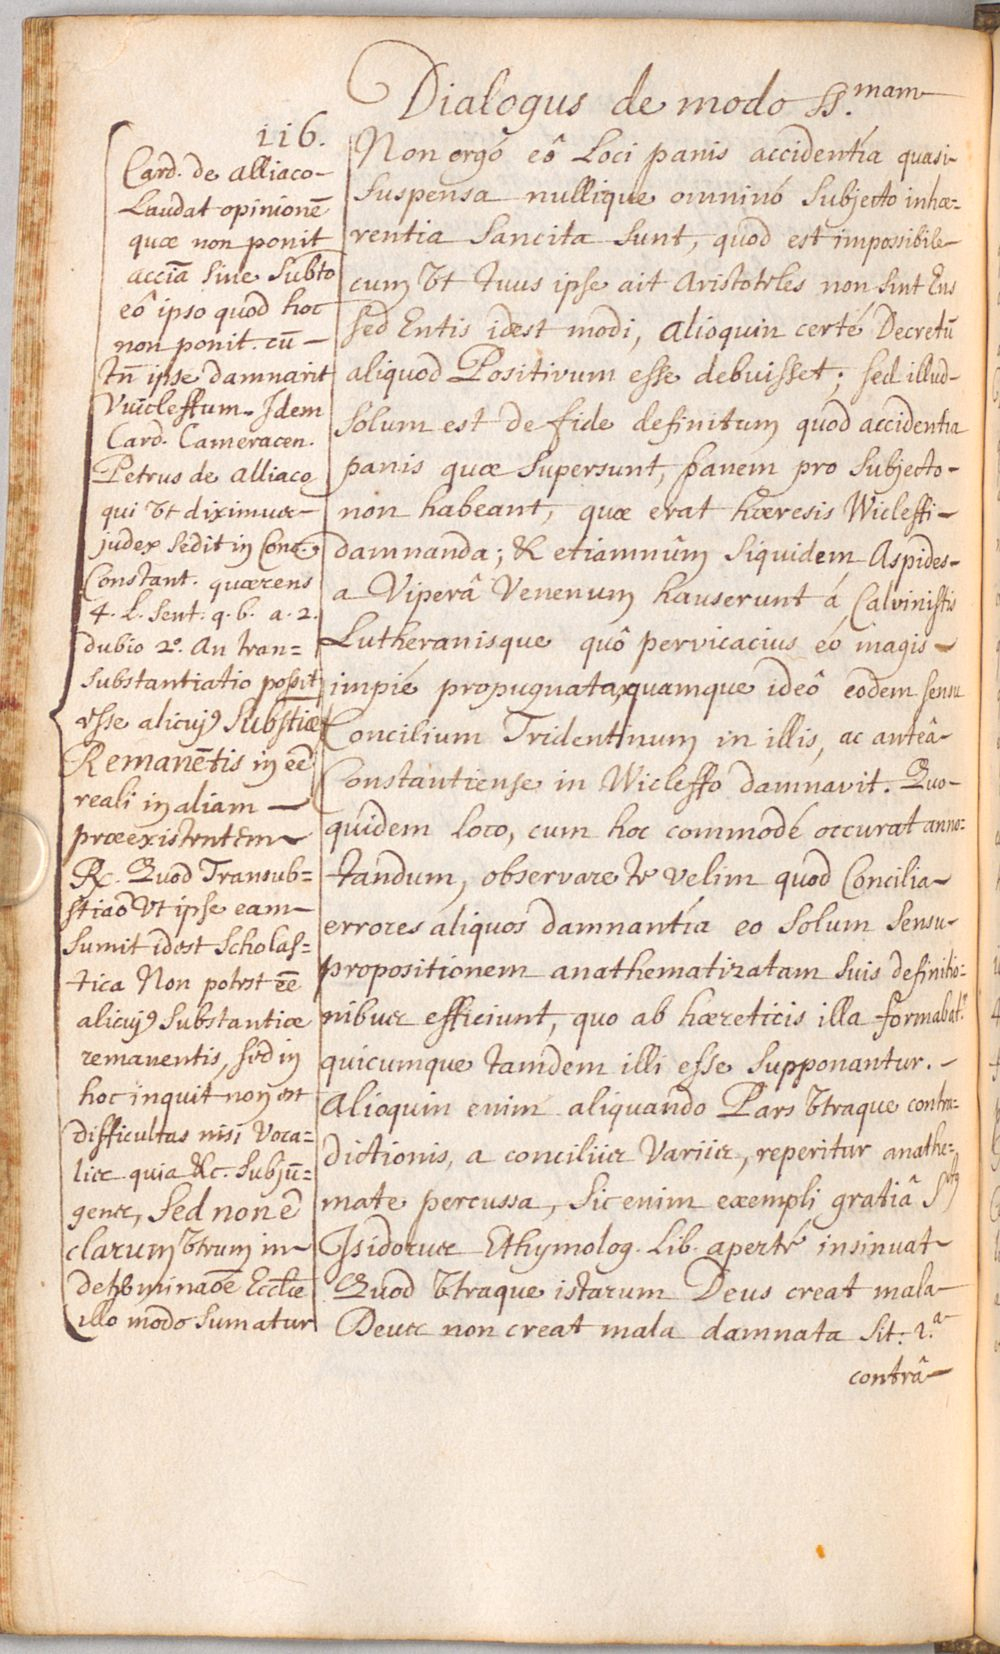 Dialogus de modo SS.mam
116.
Card. de Alliaco
Laudat opinionē
quæ non ponit
acciā sine Subto
eô ipso quod hoc
non ponit. cū
tn̄ ipse damnarit
Vuicleffum. Idem
Card. Cameracen.
Petrus de Alliaco
qui Ut diximus
judex sedit in Conc.
Constant. quærens
4. l. Sent. q. 6. a. 2.
dubio 2.º An tran=
substantiatio possit
esse alicuj9 Substiæ
Remanētis in eē
reali in aliam
præexistentem
Rx. Quod Transub=
stiaō Ut ipse eam
Sumit idest Scholas=
tica Non potest eē
alicuj9 Substantiæ
remanentis, sed in
hoc inquit non est
difficultas nisi Voca=
lis quia &c. Subjū=
gens, Sed non ē
clarum Utrum in
determinaōe Eccl̄æ
illo modo Sumatur
Non ergó eô Loci panis accidentía quasi
suspensa nullique omninó Subjecto inhæ=
rentia Sancita Sunt, quod est impossibile
cum Ut tuus ipse ait Aristoteles non sint Ens
sed Entis idest modi, Alioquin certé Decretū
aliquod Positivum esse debuisset; sed illud
Solum est de fide definitum quod accidentia
panis quæ Supersunt, panem pro Subjecto
non habeant, quæ erat hæresis Wicleffi
damnanda; & etiamnûm siquidem Aspides
a Viperâ Venenum hauserunt á Calvinistis
Lutheranisque quô pervicacius eó magis
impié propugnata, quamque ideô eodem sensu
Concilium Tridentinum in illis, ac anteâ
Constantiense in Wicleffo damnavit. Quo-
quidem loco, cum hoc commodé occurat anno=
tandum, observare te velim quod Concilia
errores aliquos damnantía eo Solum Sensu
propositionem anathematizatam suis definitio=
nibus efficiunt, quo ab hæreticis illa formabat.r
quicumque tamdem illi esse Supponantur.
Alioquin enim aliquando Pars Utraque contra=
dictionis, a conciliis Variis, reperitur anathe=
mate percussa, Sic enim exempli gratiâ S.tus
Isidorus Ethymolog. Lib. aperté insinuat
Quod Utraque istarum Deus creat mala
Deus non creat mala damnata sit. 1.a
contrâ